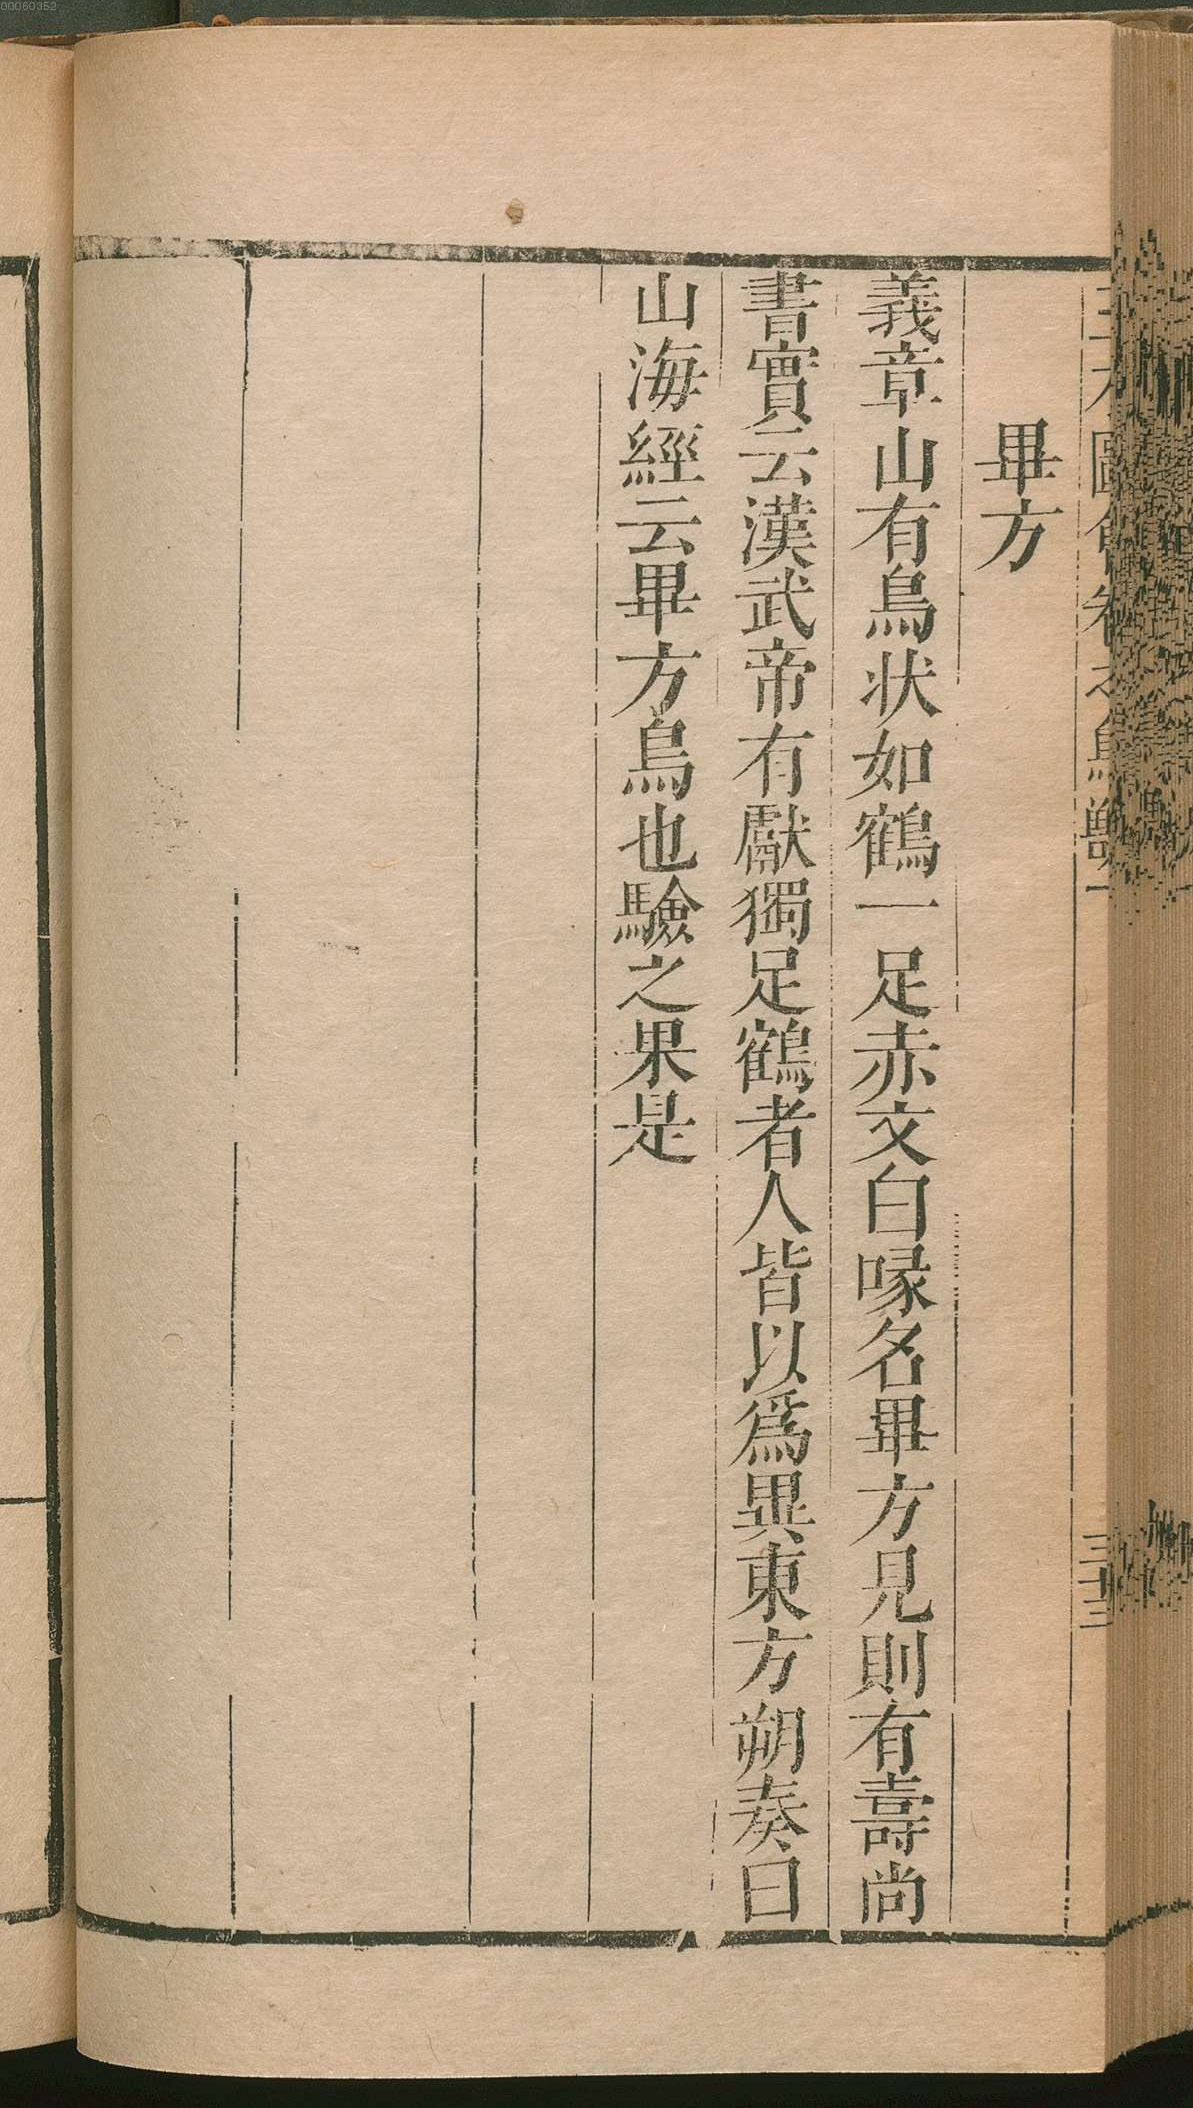 00060352
畢方
義章山有鳥狀如鶴一足赤文白喙名畢方見則有壽尚
書實云漢武帝有獻獨足鶴者人皆以爲異東方朔奏曰
山海經云畢方鳥也驗之果是
三十三